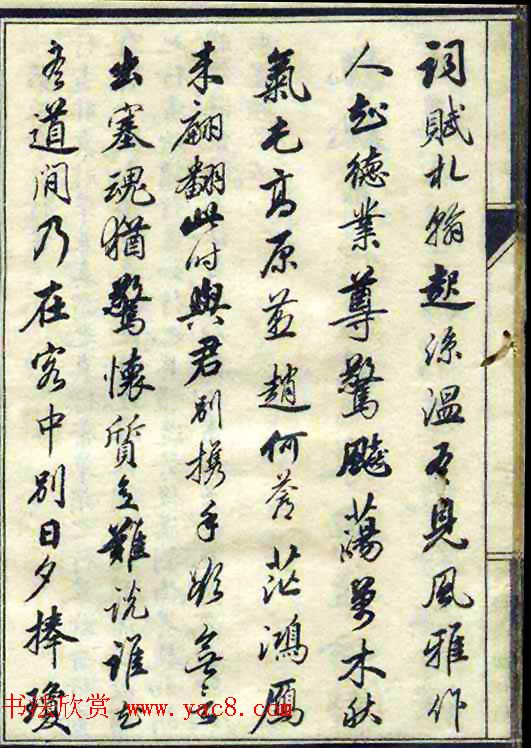 詞賦札翰起溫見風雅作
人知德業尊驚飈蕩萬木秋
氣屯高原燕趙何蒼茫鴻鴈
來翩翻此時與君別攜手欲無言
出塞魂猶驚懷質意難說誰知
吾道間乃在客中別日夕捧瓊
书法欣赏 www.yac8.com